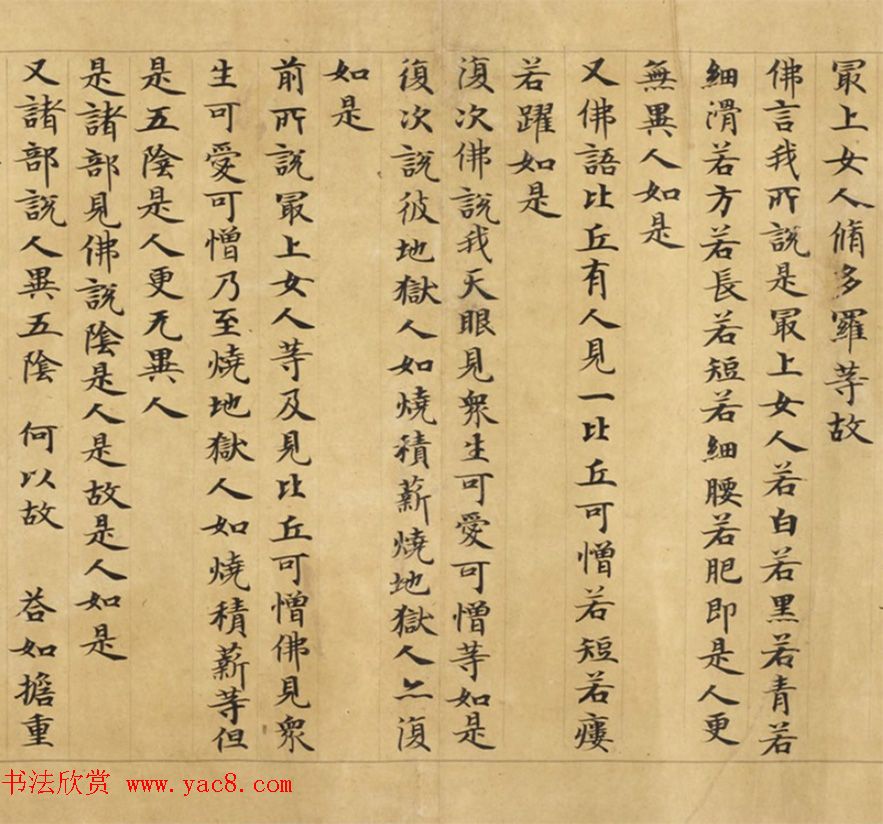 冣上女人脩多羅等故
佛言我所說是冣上女人若白若黑若青若
細滑若方若長若短若細腰若肥即是人更
無異人如是
又佛語比丘有人見一比丘可憎若短若瘻
若躍如是
復次佛說我天眼見衆生可愛可憎等如是
復次說彼地獄人如燒積薪燒地獄人亦復
如是
前所說冣上女人等及見比丘可憎佛見衆
生可愛可憎乃至燒地獄人如燒積薪等但
是五陰是人更无異人
是諸部見佛說陰是人是故是人如是
又諸部說人異五陰 何以故 荅如擔重
书法欣赏 www.yac8.com